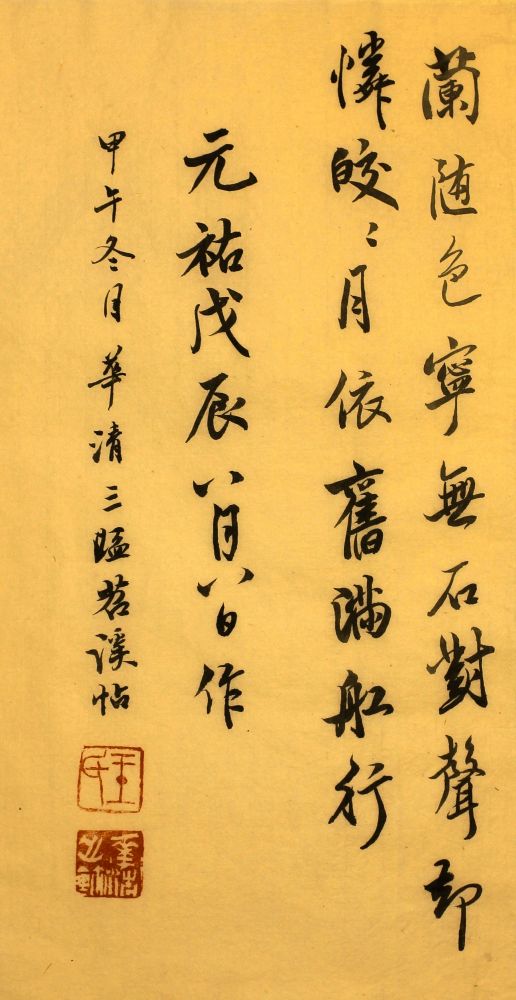 蘭随色寧無石對聲却
憐皎〻月依舊滿舡行
元祐戊辰八月八日作
甲午冬月華清三臨苕溪帖
王氏